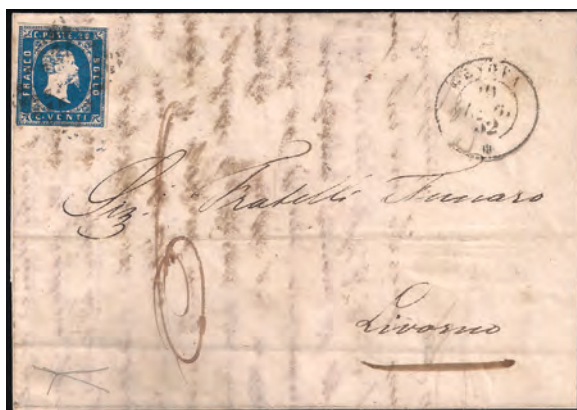 C. POSTE 20
FRANCO
BOLLO
C. VENTI
GENOVA
52
Sigg.i Fratelli Funaro
6
Livorno